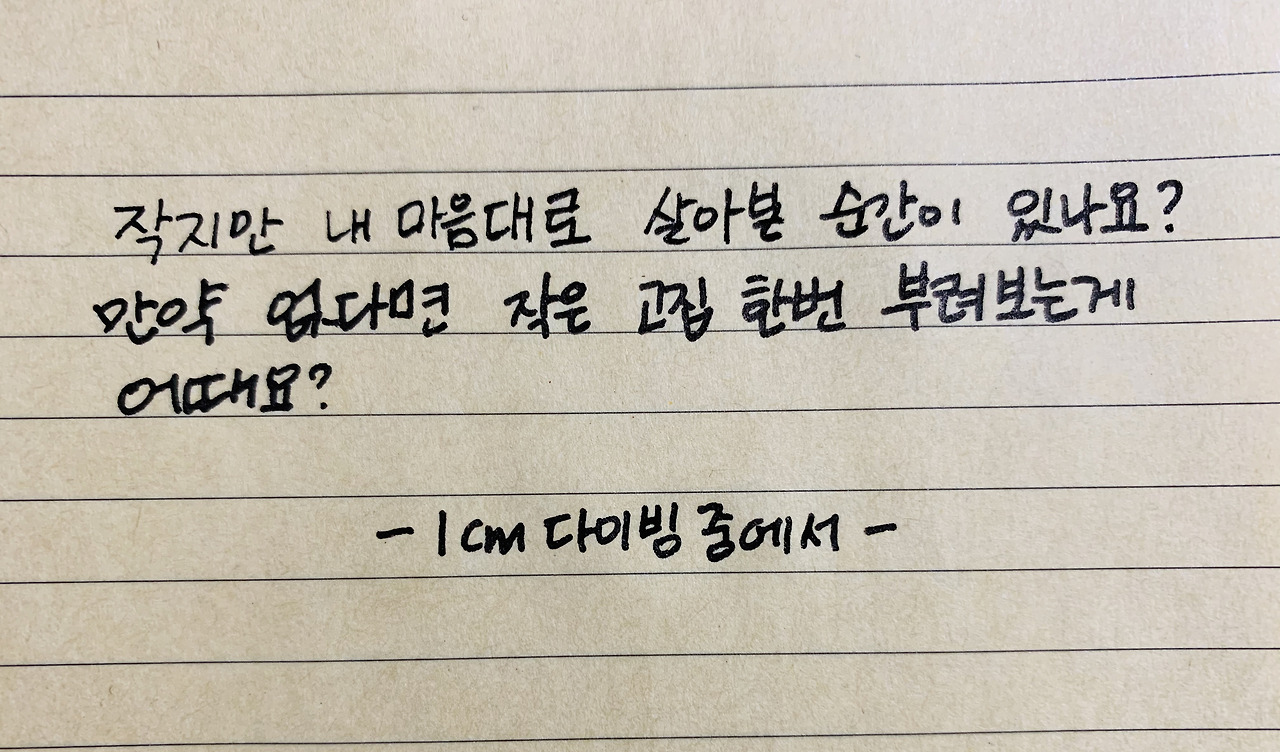 작지만 내 마음대로 살아본 순간이 있나요?
만약 없다면 작은 고집 한번 부려보는게
어때요?
- 1cm 다이빙 중에서 -